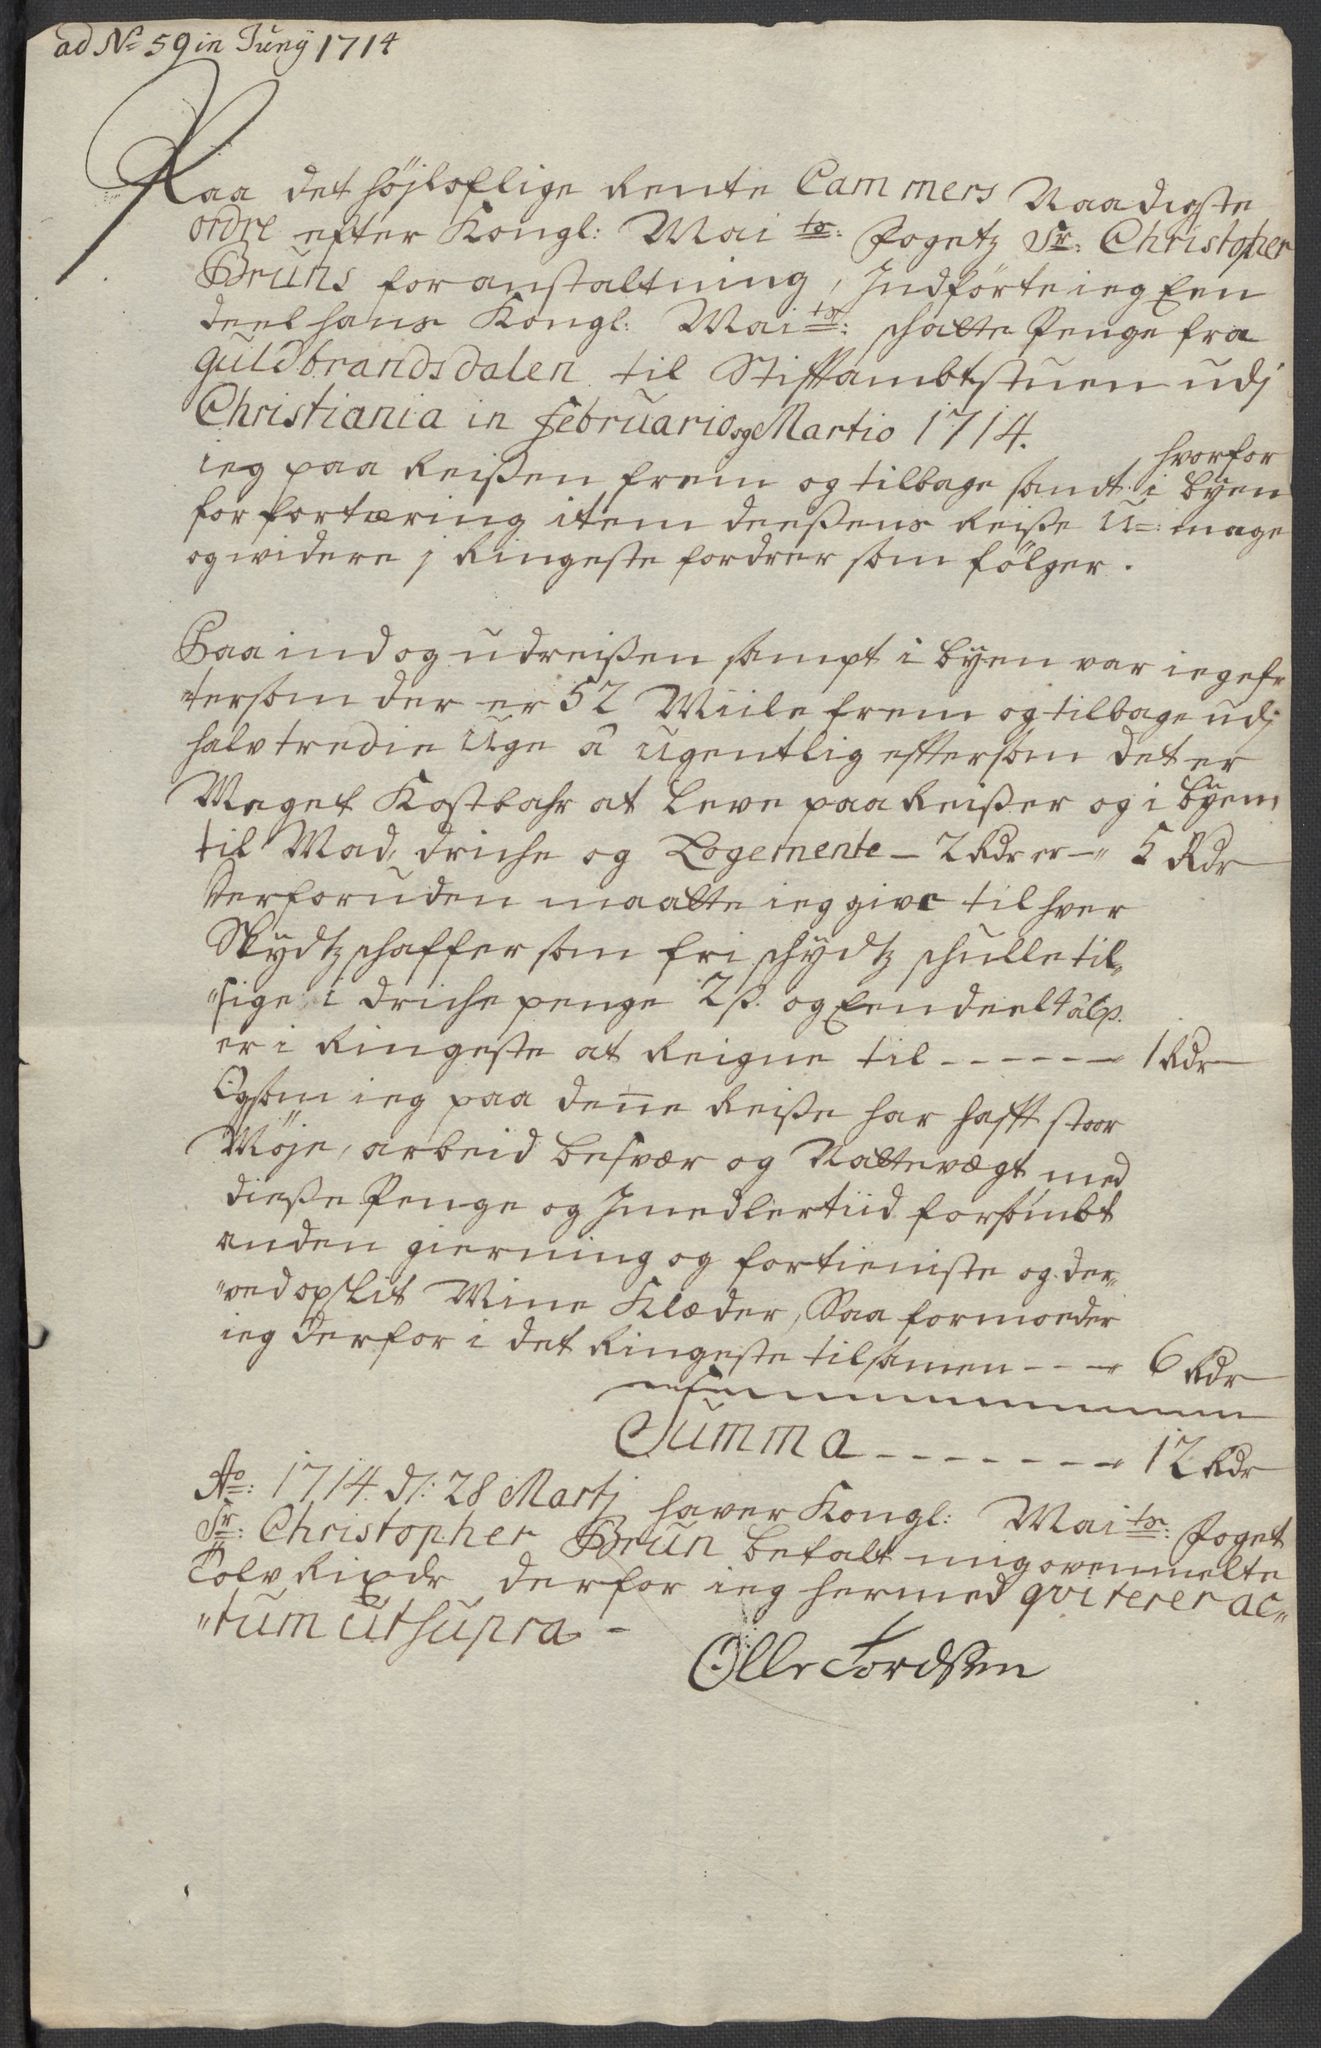 ad No 59 in Junij 1714
Paa det höjloflige Rente Cammers Naadigste
ordre efter Kongl: Maits: Fogetz Sr: Christopher
Bruns foranstaltning, Indförte ieg Een
deel hans Kongl: Maits: schatte Penge fra
Guldbrandsdalen til Stiftambtstuen udj
Christiania in Februario og Martio 1714.
hvorfor
ieg paa Reißen frem og tilbage samt i byen
for fortæring item deeßens Reiße U=mage
og widere j Ringeste fordrer som fölger.
Paa ind og udreißen sampt i byen var ieg ef=
"tersom der er 52 Miile frem og tilbage udj
halv tredie Uge â ugentlig eftersom det er
Meget Kostbahr at leve paa Reißer og i byen
til Mad, driche og Logemente - 2 Rdr er - 5 Rdr
Derforuden maatte ieg give til hver
Skydtzschaffer som fri schydtz schulle til"
"sige i driche penge 2 ß. og Een deel 4 à 6 ß.
er i Ringeste at Reigne til - - - - - - 1 Rdr
Og som ieg paa denne Reiße har hafft stoor
Möje, arbeid besvær og Nattevægt med
dieße Penge og Imedlertiid forsömbt
anden gierning og fortieniste og der"
"ved opslit Mine Klæder, Saa formoeder
ieg derfor i det Ringeste tilsamen - - - 6 Rdr
Summa - - - - - - - 12 Rdr
Ao: 1714 d: 28 Martj haver Kongl: Maits: Foget
Sr: Christopher Brun betalt mig ovenmelte
Tolv Rixdr derfor ieg hermed qviterer ac"
"tum ut supra -
Olle Tordssen